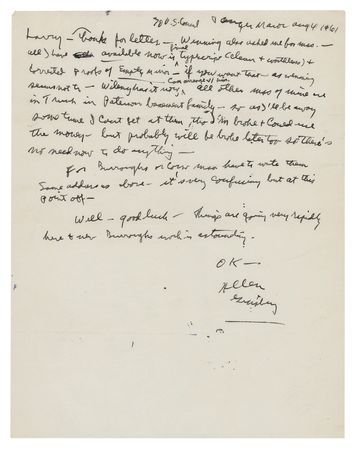 US Consul Tanger Maroc Aug 4 1961
Larry — Thanks for letter — Winning also asked me for mss. —
all I have available now is final typescript (clean & worthless) &
corrected proofs of Empty Mirror — if you want that — as winning
seems not to — all other mss of mine are
in Trunk in Paterson basement family — so as I'll be away
some time I can't get at them, tho I'm broke & could use
the money — but probably will be broke later too so there's
no need now to do anything —
For Burroughs or Corso mss have to write them
Same address as above — it's very confusing but at this
point off —
Well — good luck — Things are going very rapidly
here & new Burroughs work is astounding.
OK —
Allen
Ginsberg